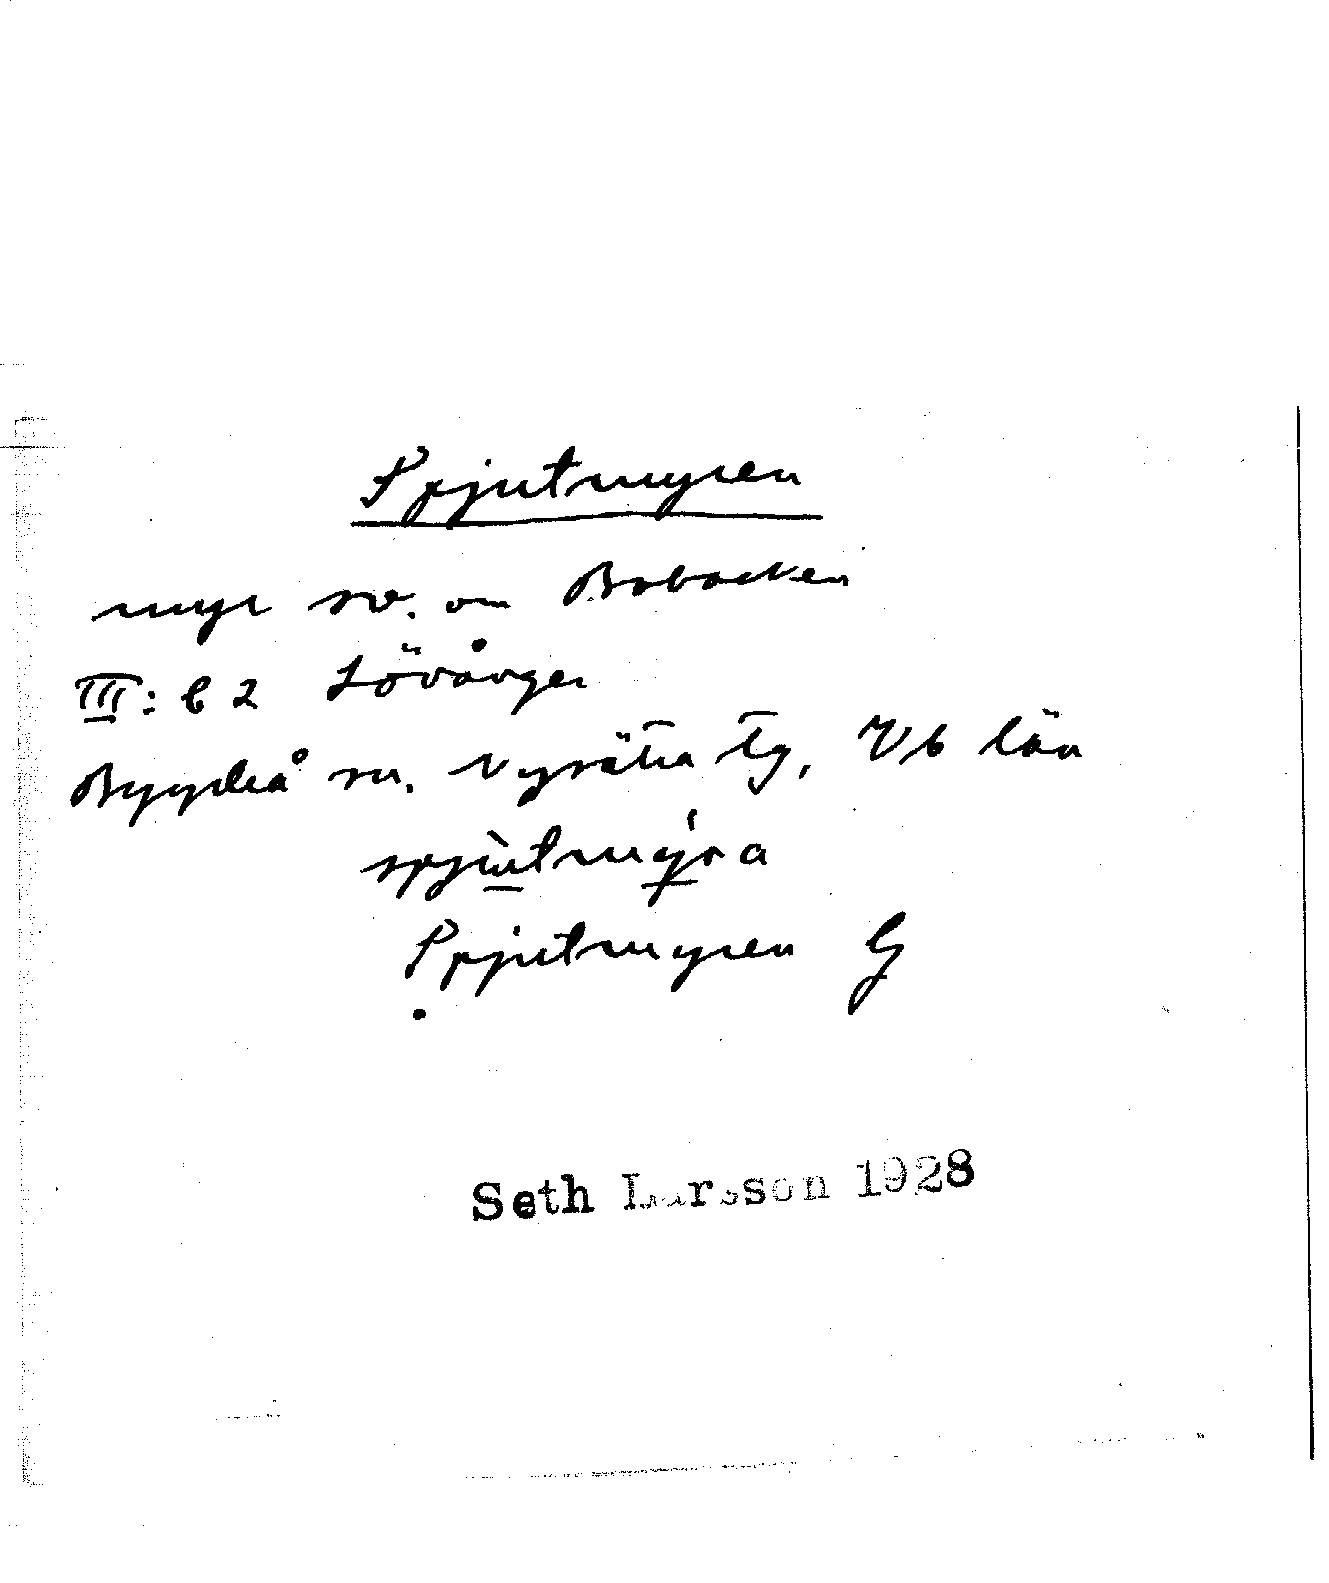 Spjutmyren
myr sv. om Bobacken
III: b 2 Lövånger
Bygdeå sn. Nysätra tg, Vb län
spju̲tmy̲ra
Spjutmyren G
Seth Larsson 1928